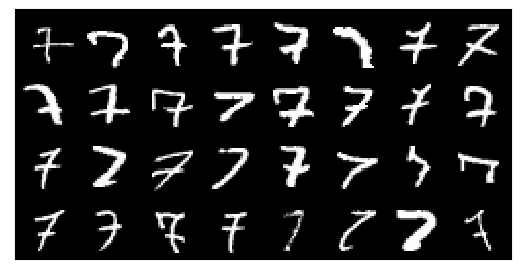 7 7 7 7 7 7 7 7
7 7 7 7 7 7 7 7
7 2 7 7 7 7 7 7
7 7 7 7 7 2 2 7